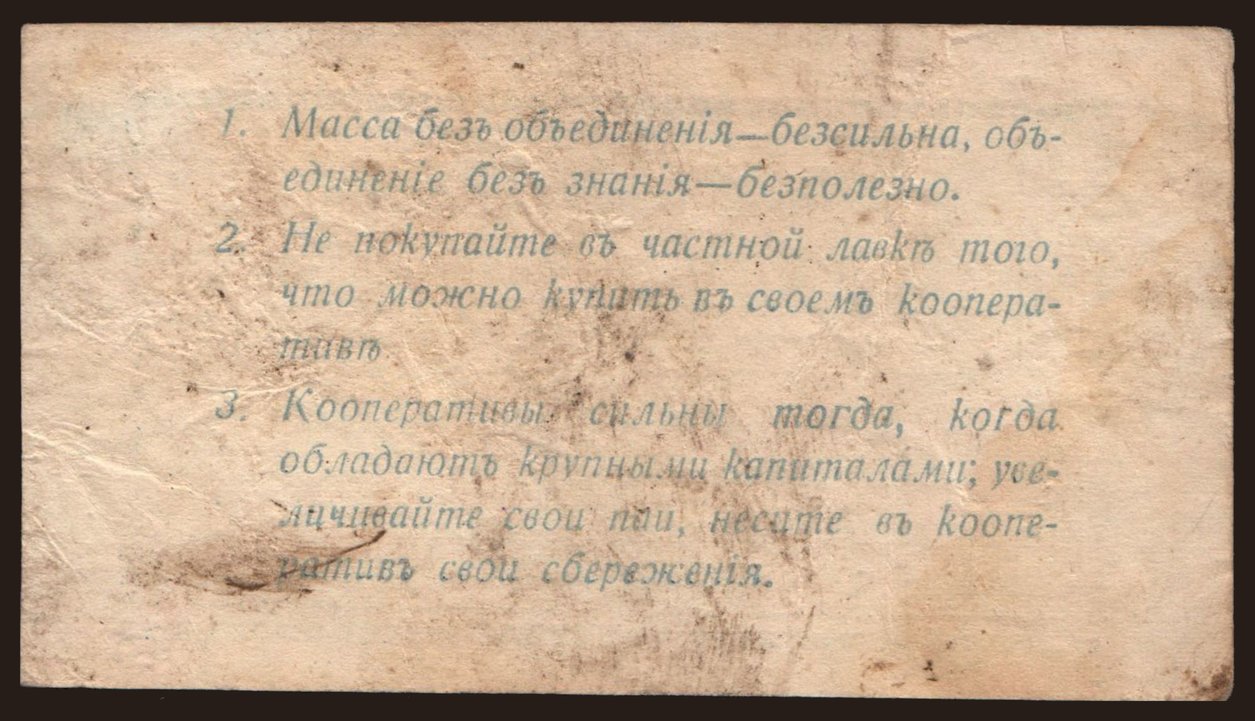 1. Масса безъ объединенія—безсильна, объ-
единеніе безъ знанія—безполезно.
2. Не покупайте въ частной лавкѣ того,
что можно купить въ своемъ коопера-
тивѣ
3. Кооперативы сильны тогда, когда
обладаютъ крупными капиталами; уве-
личивайте свои паи, несите въ коопе-
ративъ свои сбереженія.